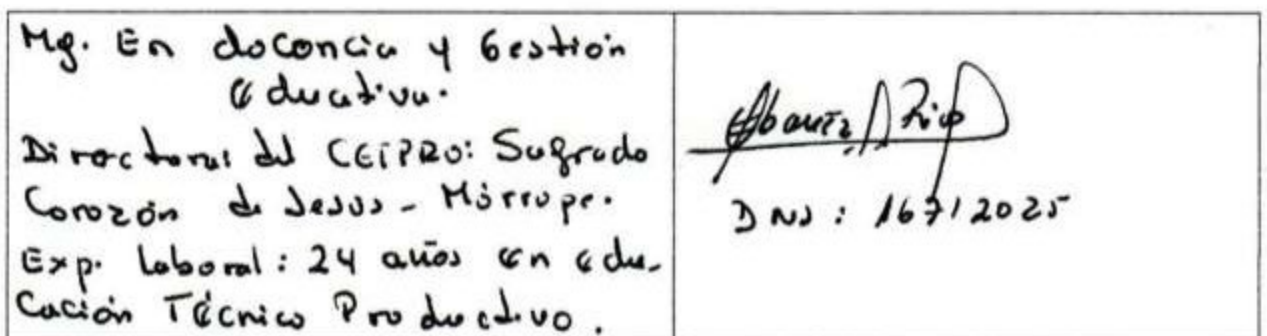 Mg. En doconcia y Gestión
educativa.
Directora: del CETPRO: Sagrado
Corozón de Jesus - Mórrope.
Exp. Laboral: 24 años en edu-
cación Técnico Productivo.
DNJ: 16712025